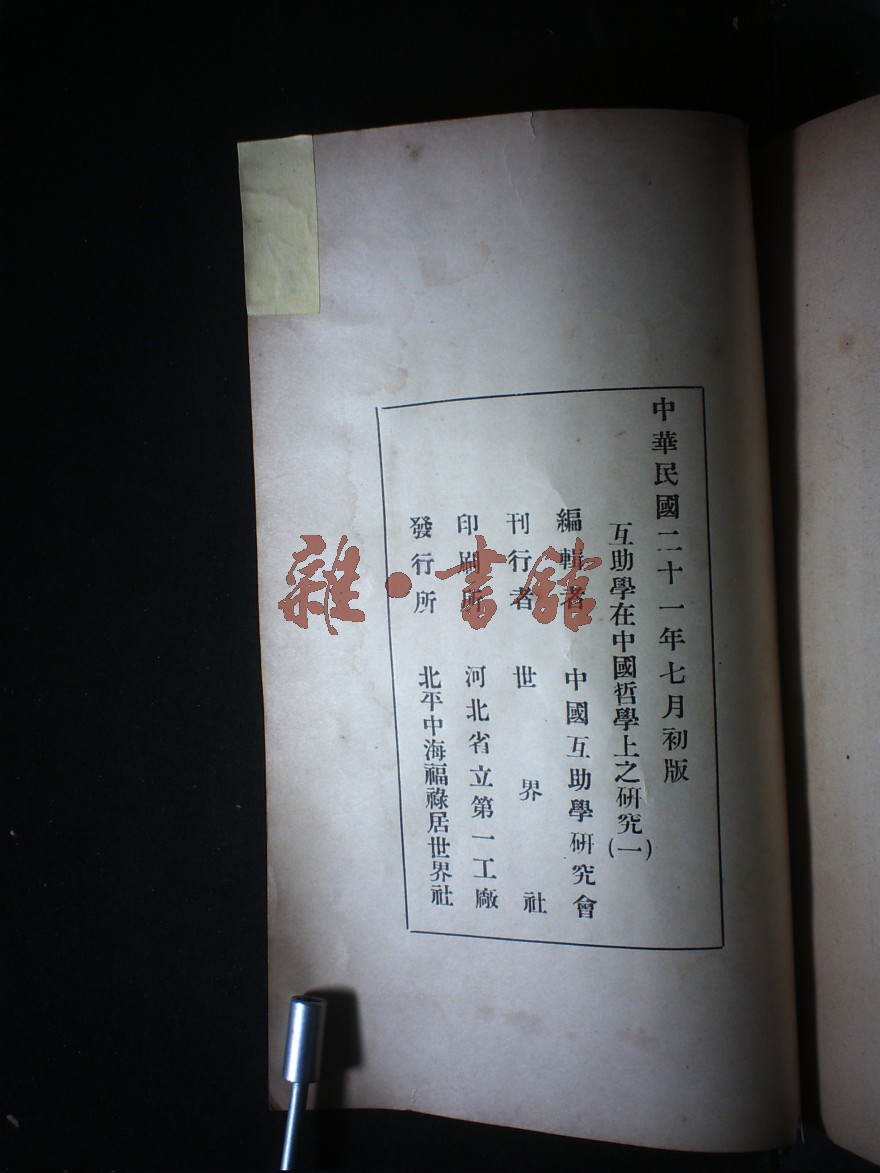 中華民國二十一年七月初版
互助學在中國哲學上之研究(一)
編輯者 中國互助學研究會
刊行者 世界社
印刷所 河北省立第一工廠
發行所 北平中海福祿居世界社
雜·書館